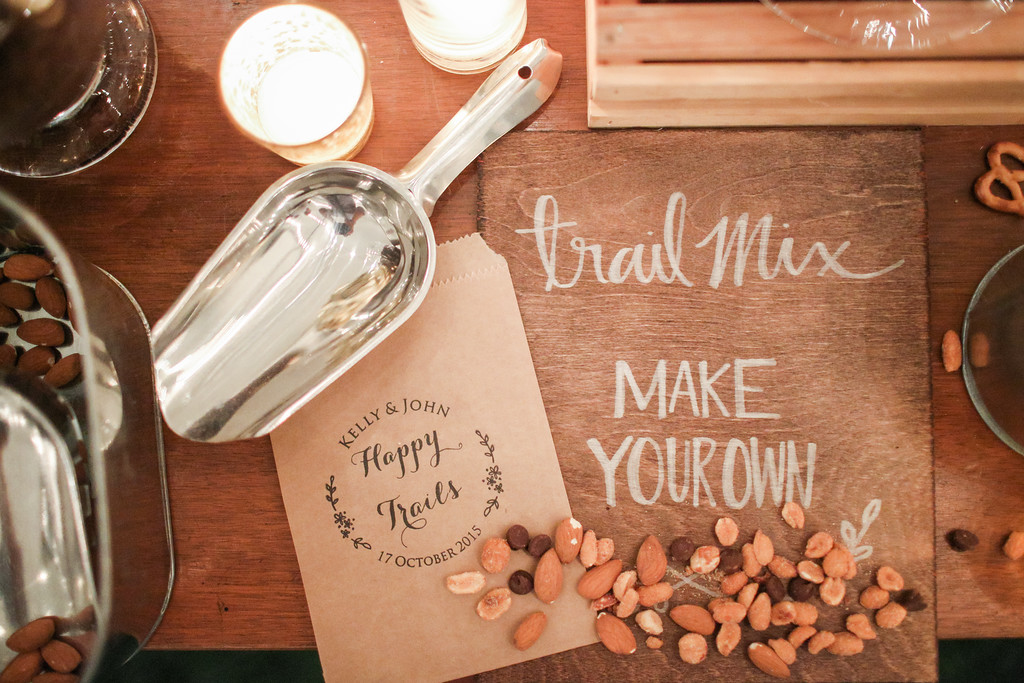 trail Mix
MAKE
YOUR OWN
KELLY & JOHN
Happy
Trails
17 OCTOBER 2015